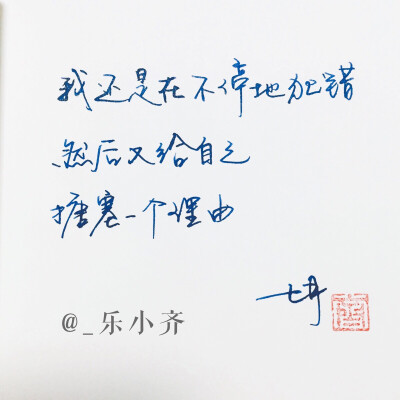 我还是在不停地犯错
然后又给自己
搪塞一个理由
@_乐小齐